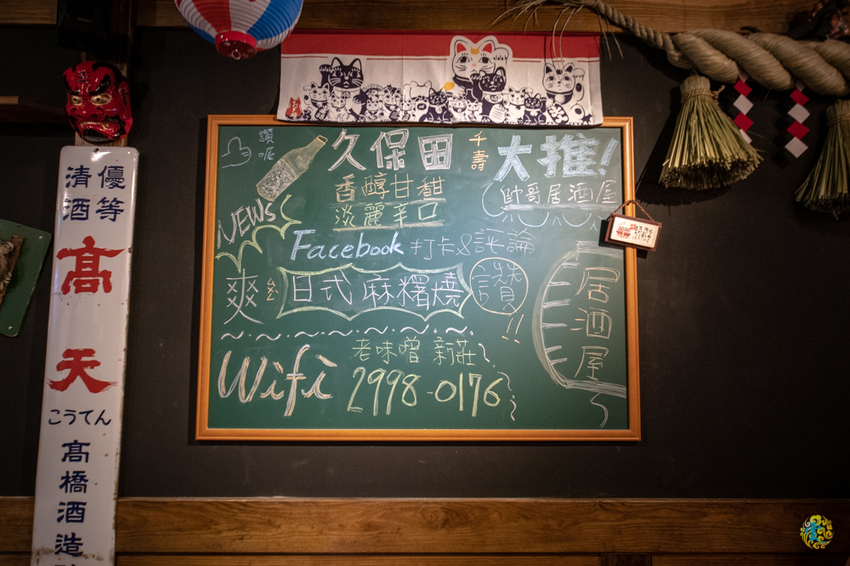 優等
清酒
高天
こうてん
高橋酒造
讚喔
久保田
千壽
大推!
香醇甘甜
淡麗辛口
帥哥居酒屋
NEWS
Facebook 打卡&評論
爽ㄠˊ
日式麻糬燒
讚!!
居酒屋
Wifi
老味噌 新莊
2998-0176